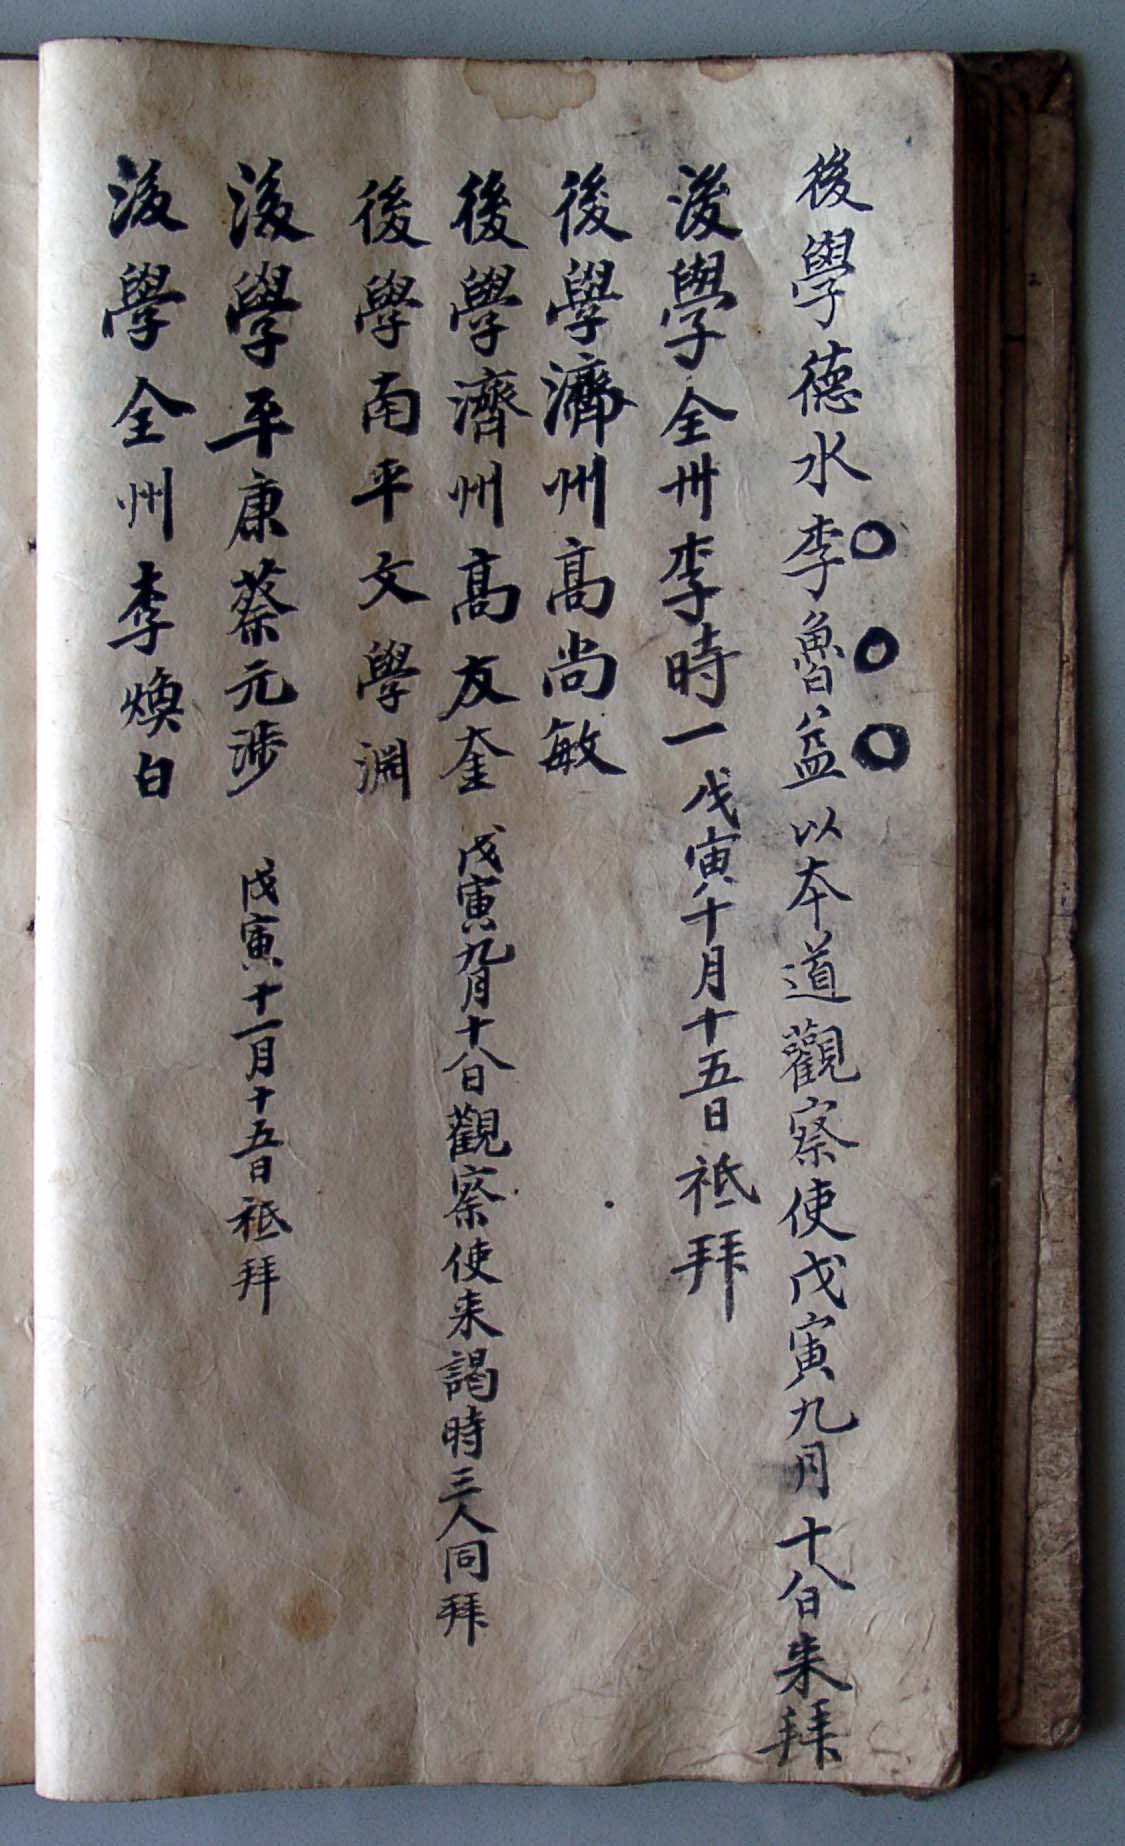 後學德水李魯益以本道觀察使戊寅九月十八日来拜
後學全州李時一戊寅十月十五日祗拜
後學濟州高尚敏
後學濟州高友奎戊寅九月十八日觀察使来謁時三人同拜
後學南平文學淵
後學平康蔡元涉戊寅十一月十五日祗拜
後學全州李煥白